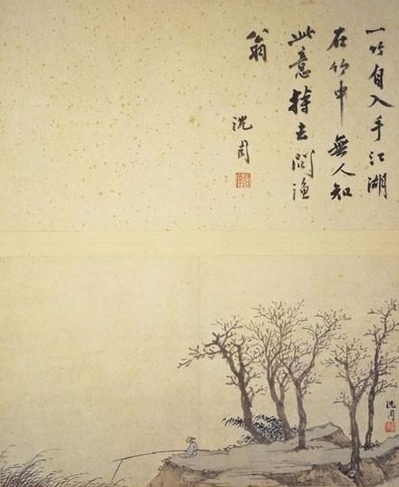 一竹自入手江湖
在竹中無人知
此意持去問漁
翁
沈周
沈周